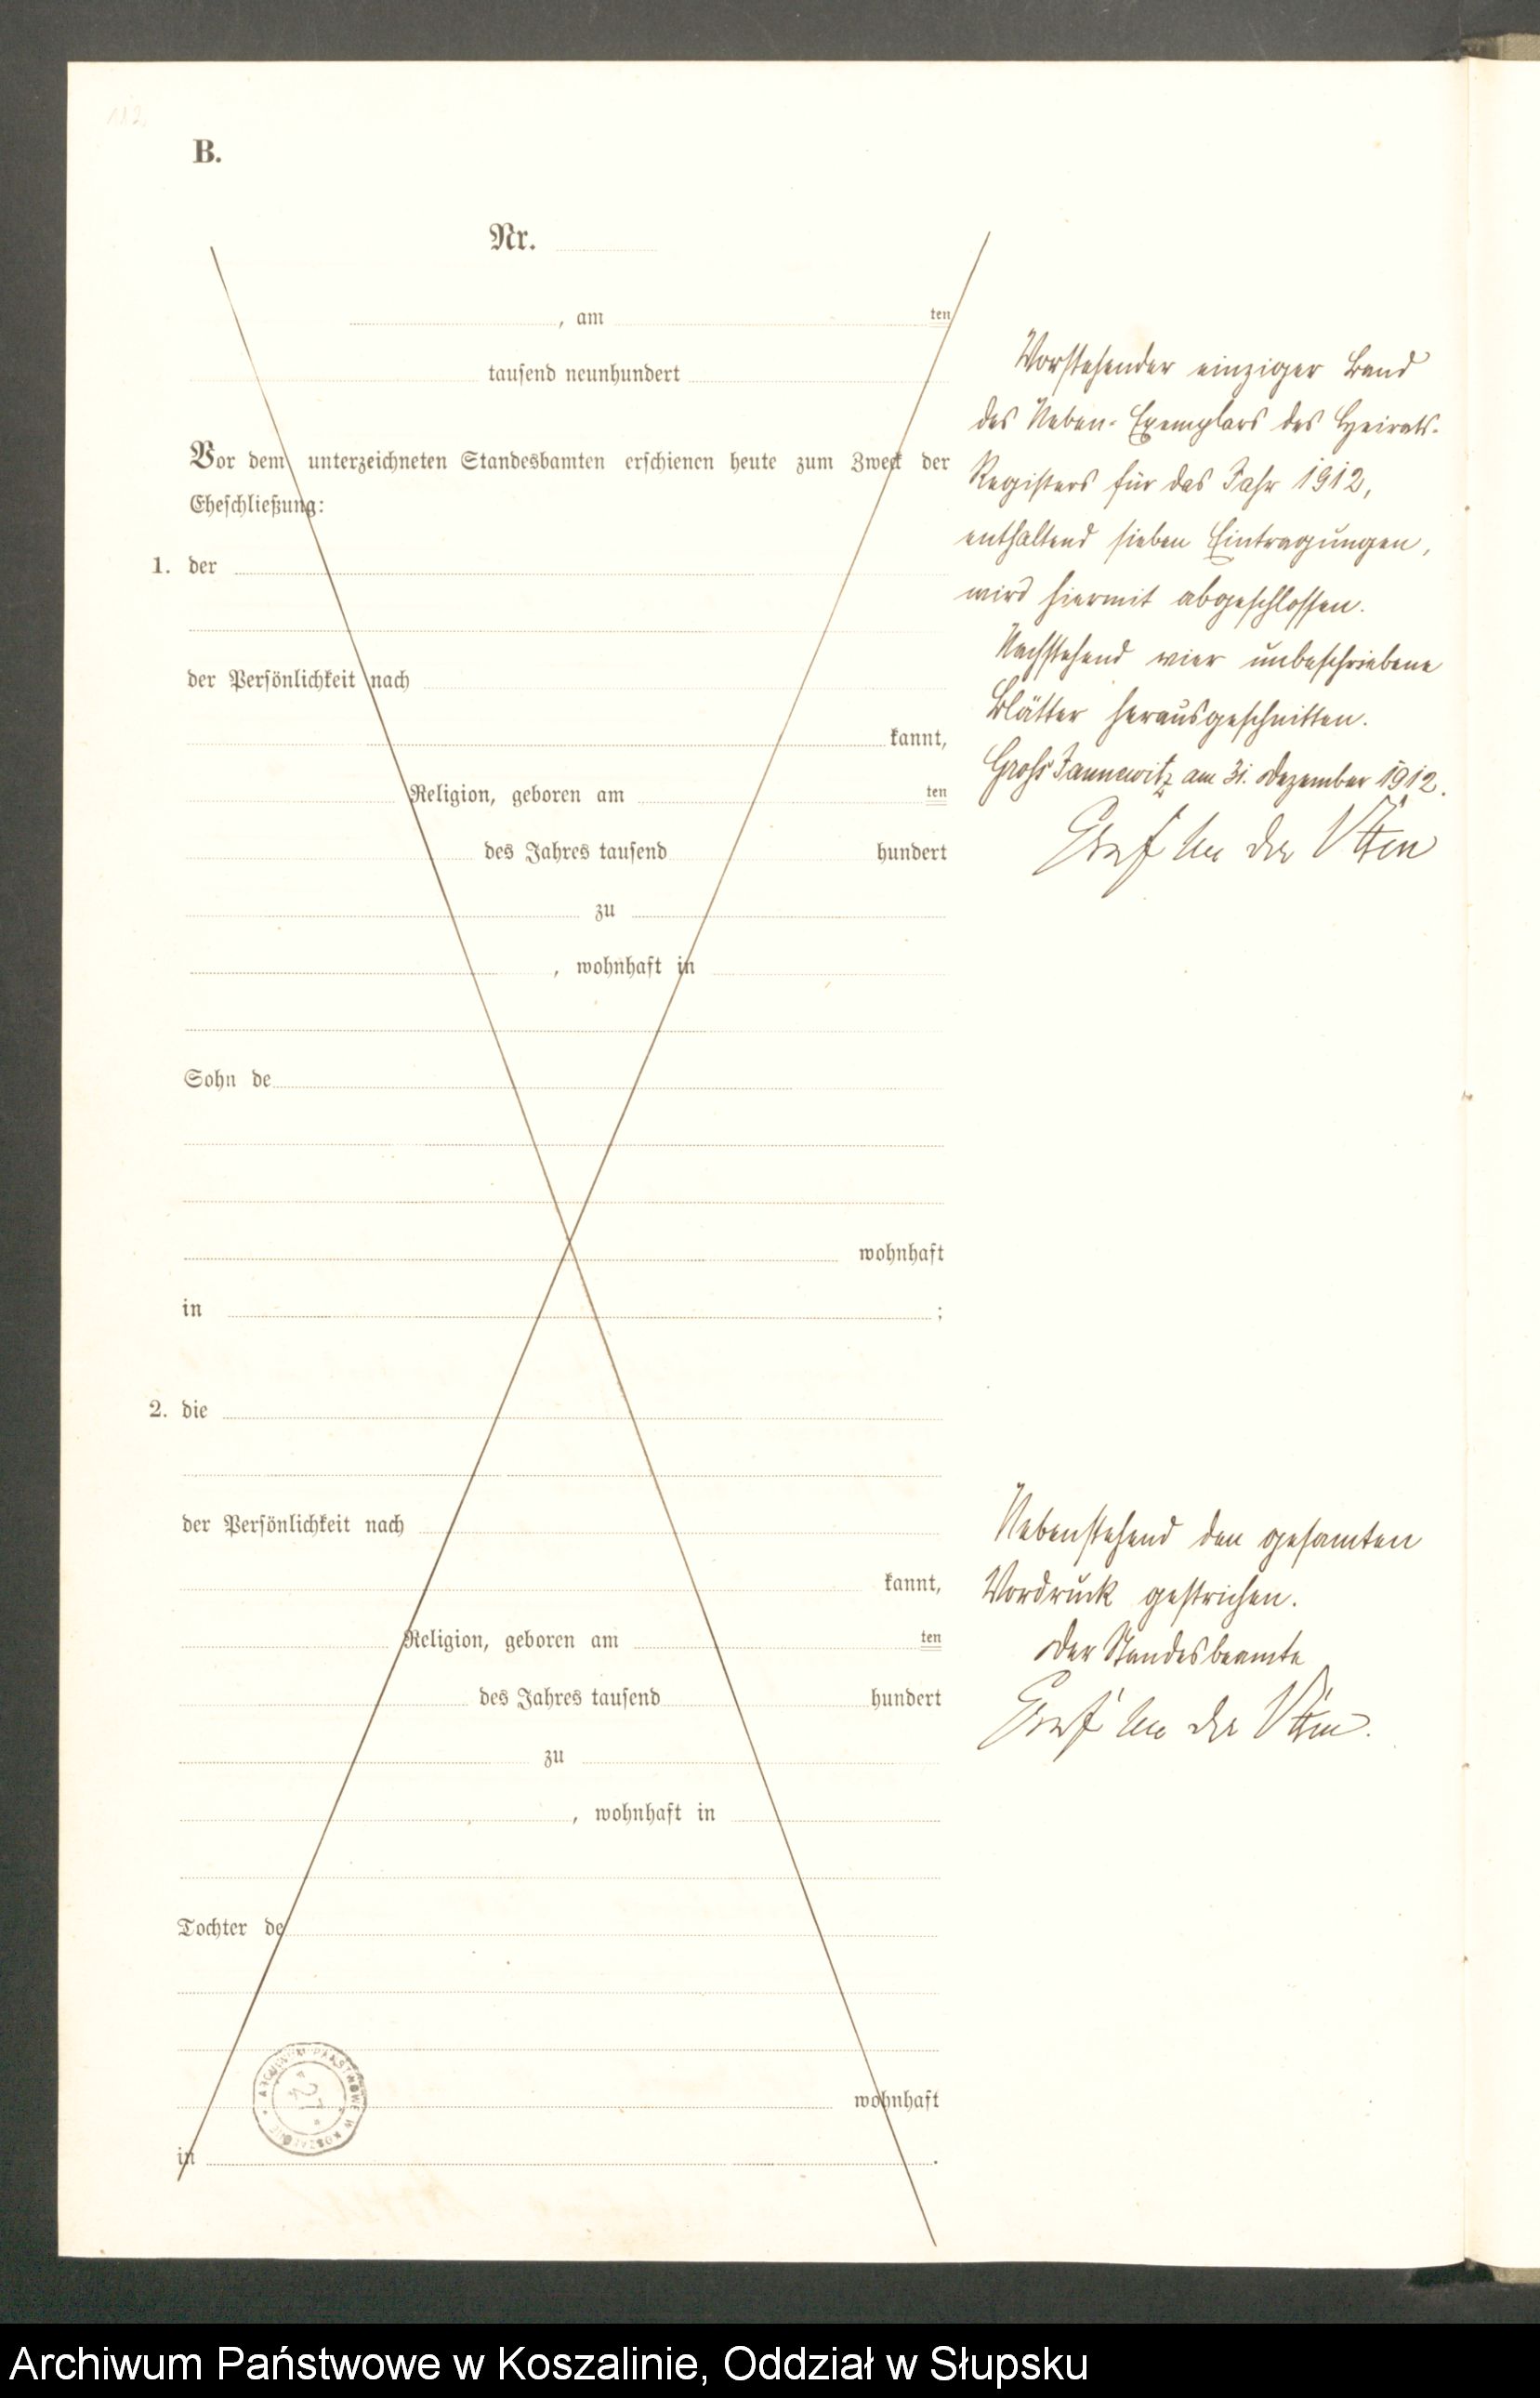 B.
Nr.
, am ten
tausend neunhundert
Vor dem unterzeichneten Standesbamten erschienen heute zum Zweck der
Eheschließung:
1. der
der Persönlichkeit nach
kannt,
Religion, geboren am ten
des Jahres tausend hundert
zu
, wohnhaft in
Sohn de
wohnhaft
in ;
2. die
der Persönlichkeit nach
kannt,
Religion, geboren am ten
des Jahres tausend hundert
zu
, wohnhaft in
Tochter de
wohnhaft
in .
Vorstehender einziger Band
des Neben-Exemplars des Heirats-
Registers für das Jahr 1912,
enthaltend sieben Eintragungen,
wird hiermit abgeschlossen.
Nachstehend vier unbeschriebene
Blätter herausgeschnitten.
Gross Jannewitz am 31. Dezember 1912.
Graf von der
Nebenstehend den gesamten
Vordruck gestrichen.
Der Standesbeamte
Graf von der
ARCHIWUM PAŃSTWOWE W KOSZALINIE
Archiwum Państwowe w Koszalinie, Oddział w Słupsku